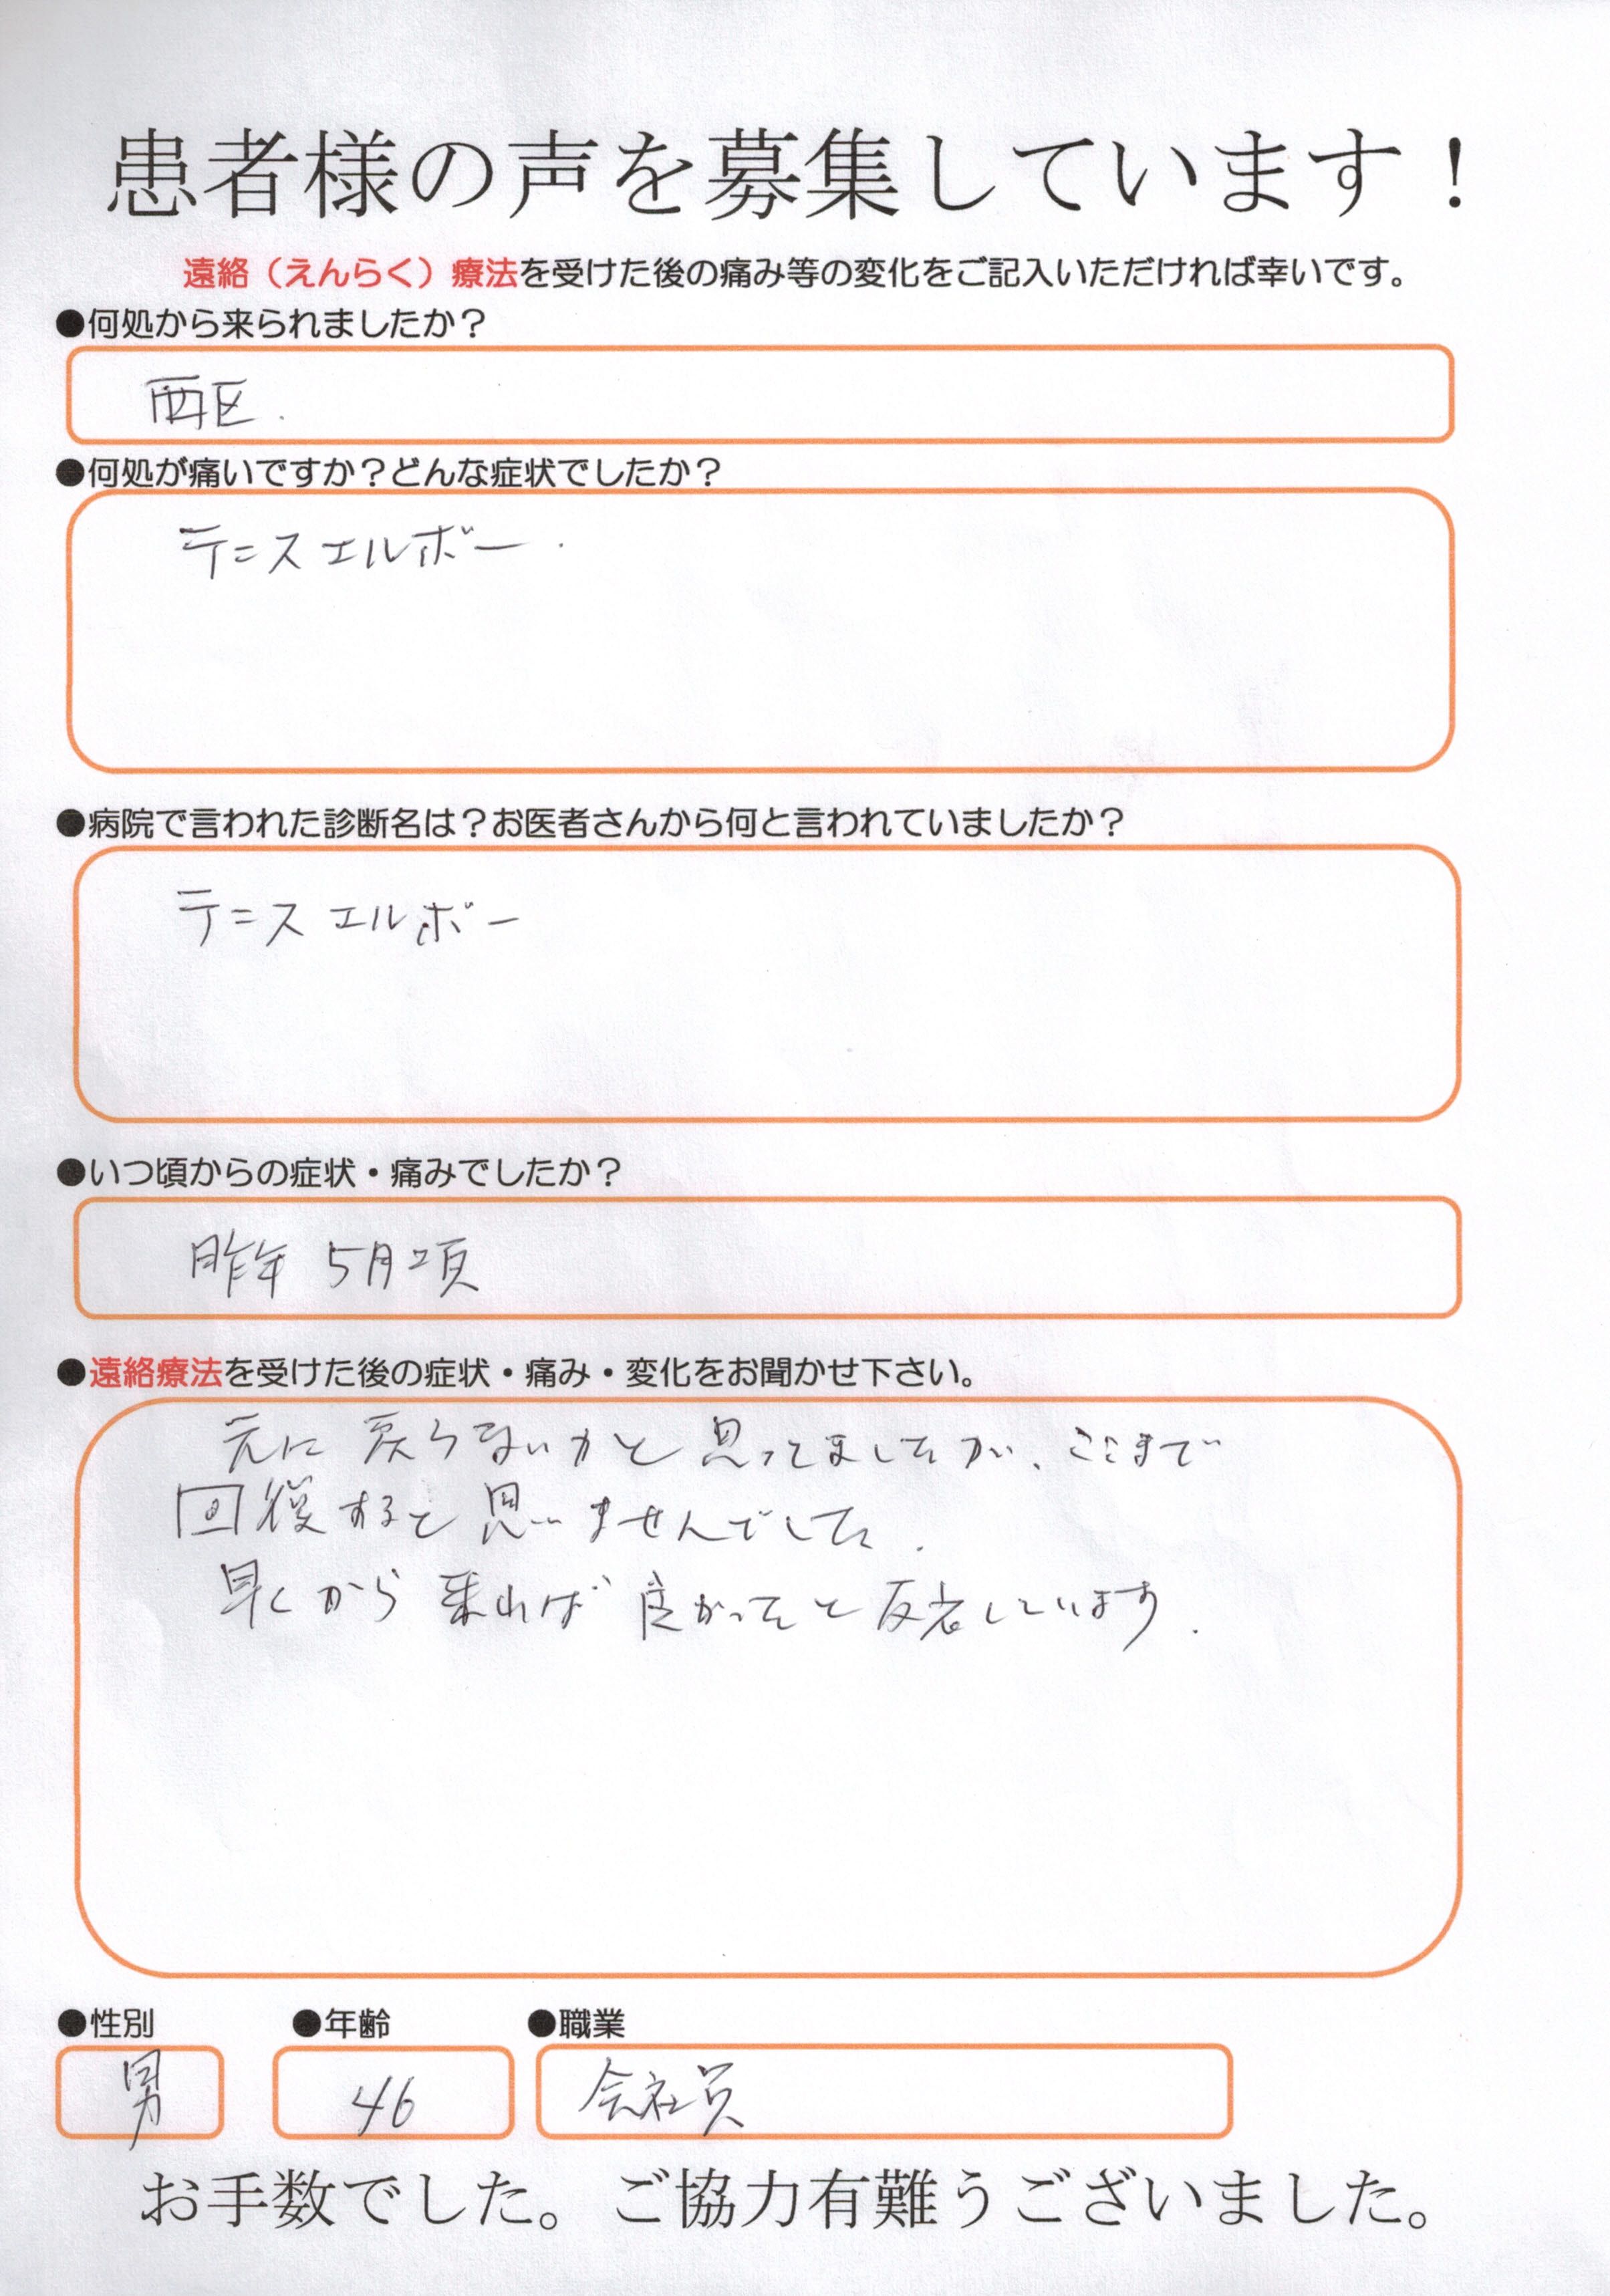 患者様の声を募集しています！
遠絡（えんらく）療法を受けた後の痛み等の変化をご記入いただければ幸いです。
●何処から来られましたか？
西区.
●何処が痛いですか？どんな症状でしたか？
テニスエルボー.
●病院で言われた診断名は？お医者さんから何と言われていましたか？
テニスエルボー
●いつ頃からの症状・痛みでしたか？
昨年 5月頃
●遠絡療法を受けた後の症状・痛み・変化をお聞かせ下さい。
元に戻らないかと思ってましたが、ここまで
回復すると思いませんでした.
早くから来れば良かったと反省しています.
●性別 ●年齢 ●職業
男 46 会社員
お手数でした。ご協力有難うございました。